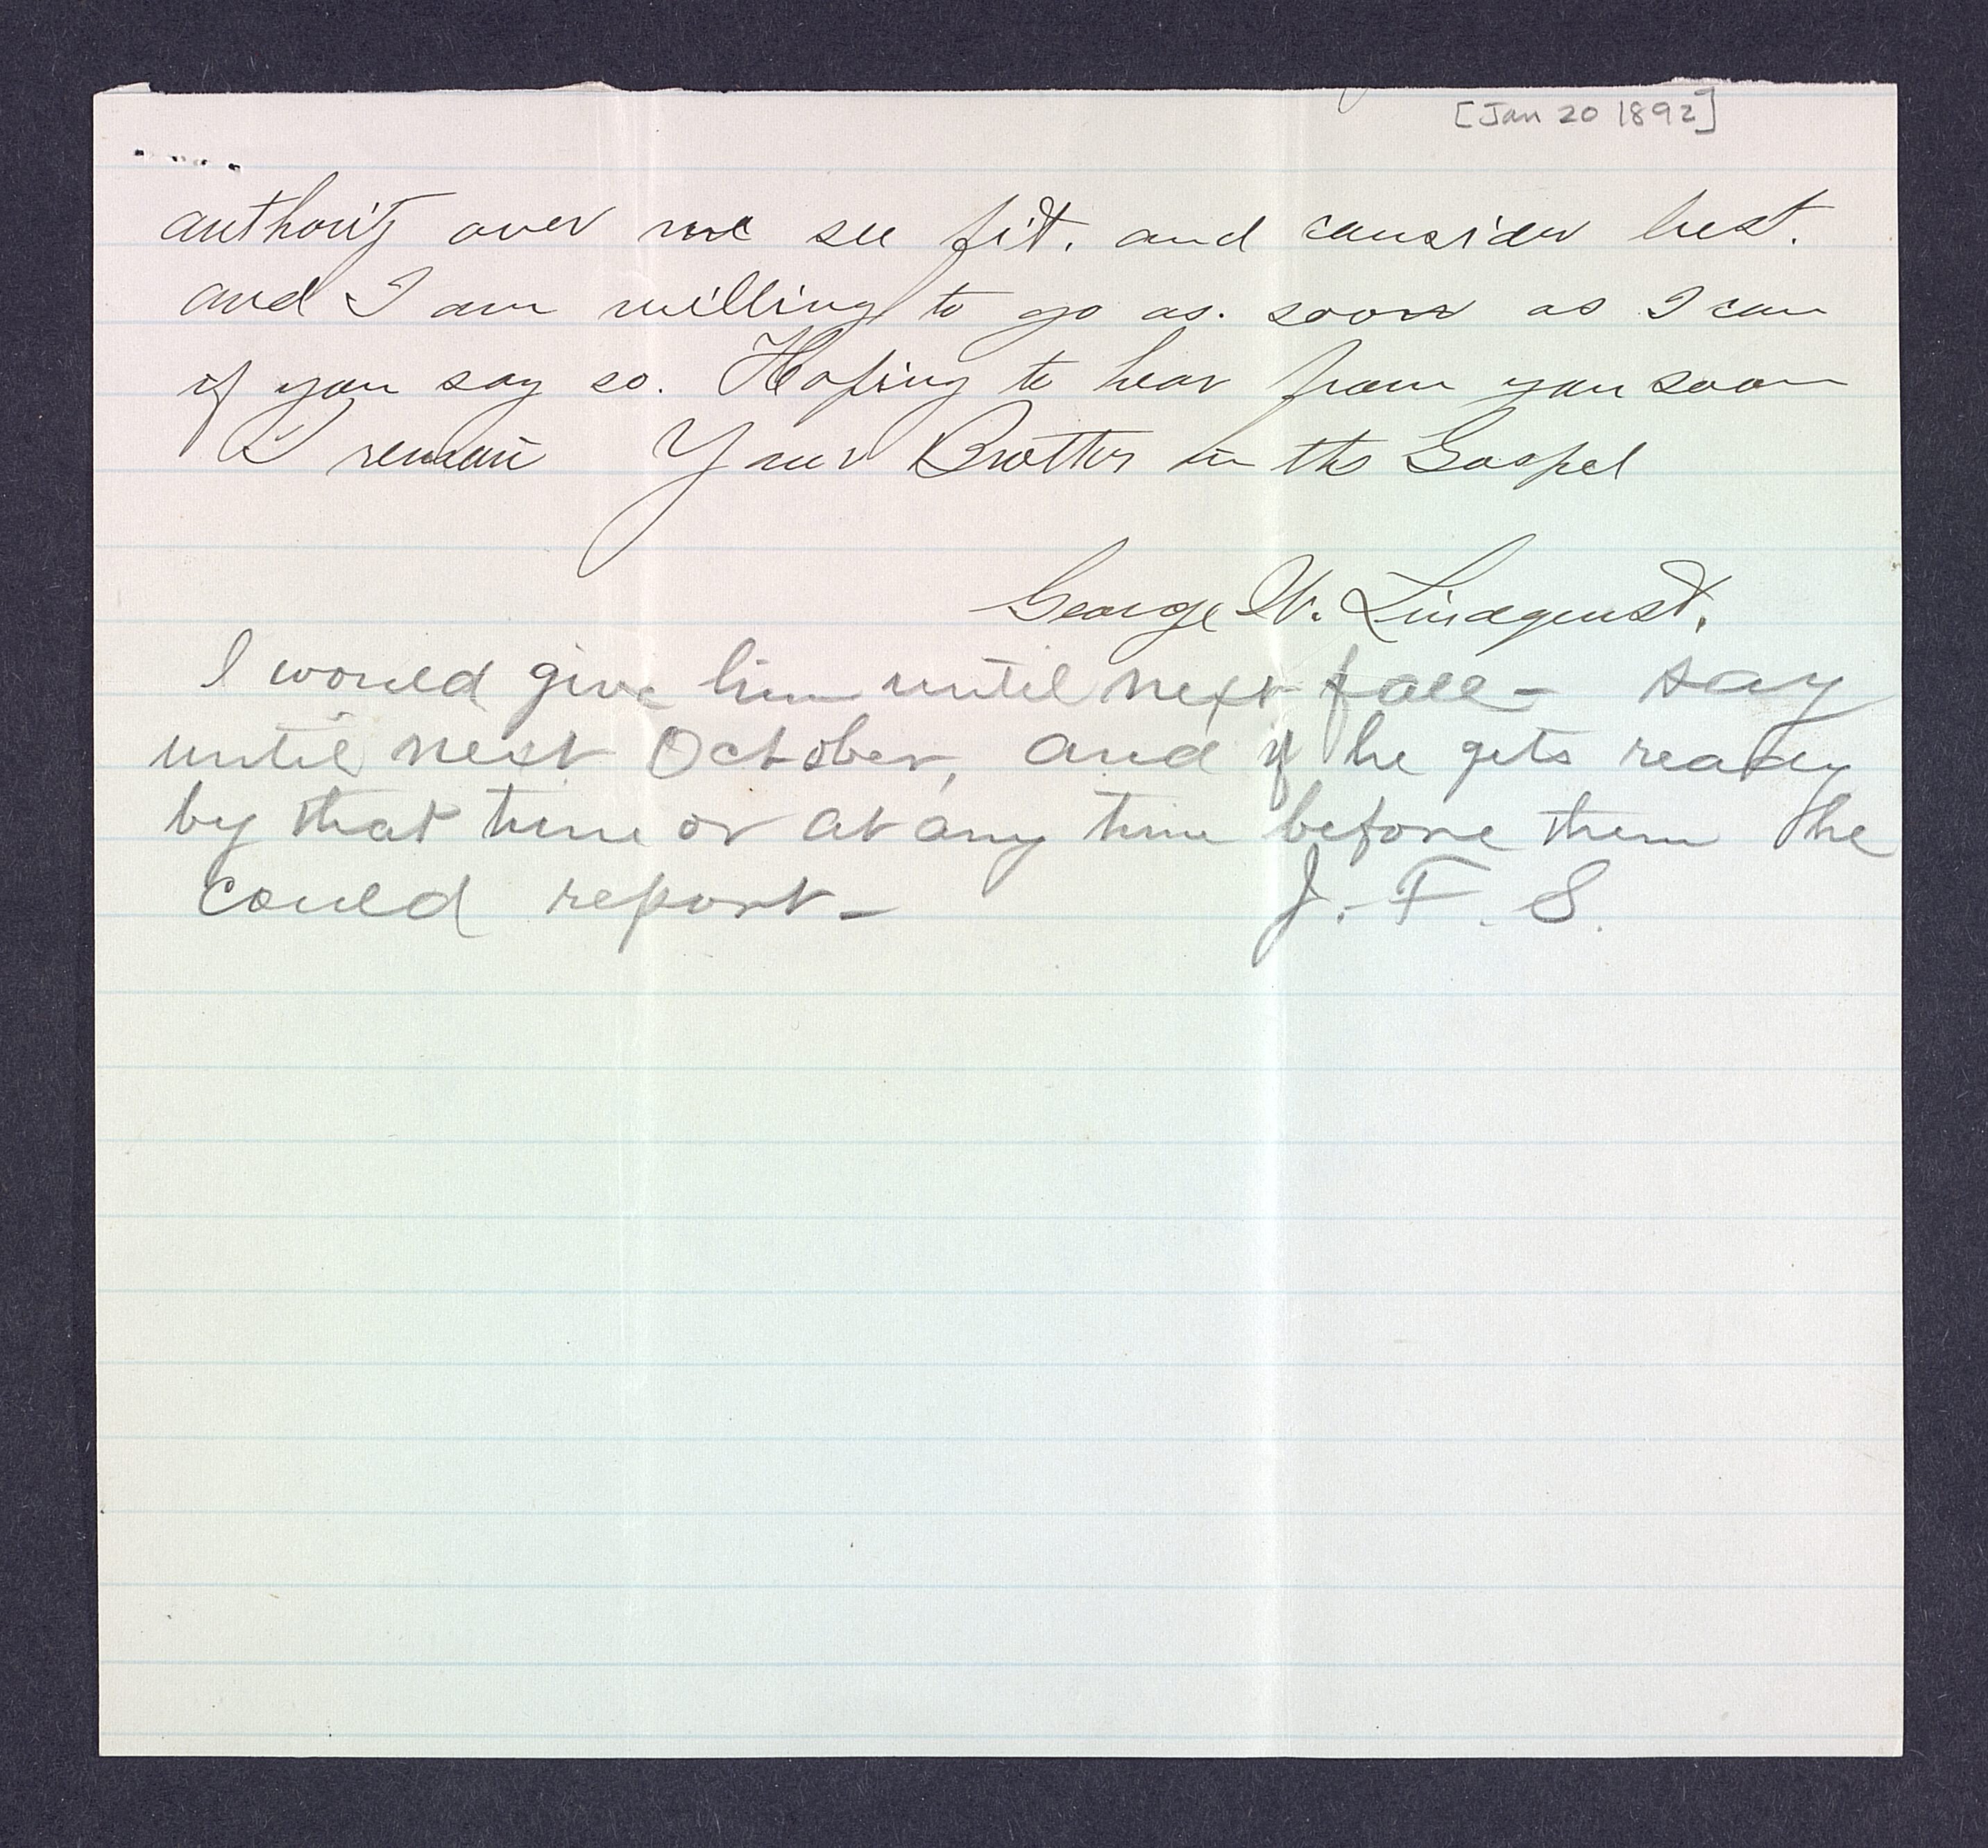 [Jan 20 1892]
authority over me see fit. and consider best.
and I am willing to go as. soon as I can
if you say so. Hoping to hear from you soon
I remain Your Brother in the Gospel
George W. Lindquist.
I would give him until next fall – say
until next October, and if he gets ready
by that time or at any time before them he
could report –  J. F. S.